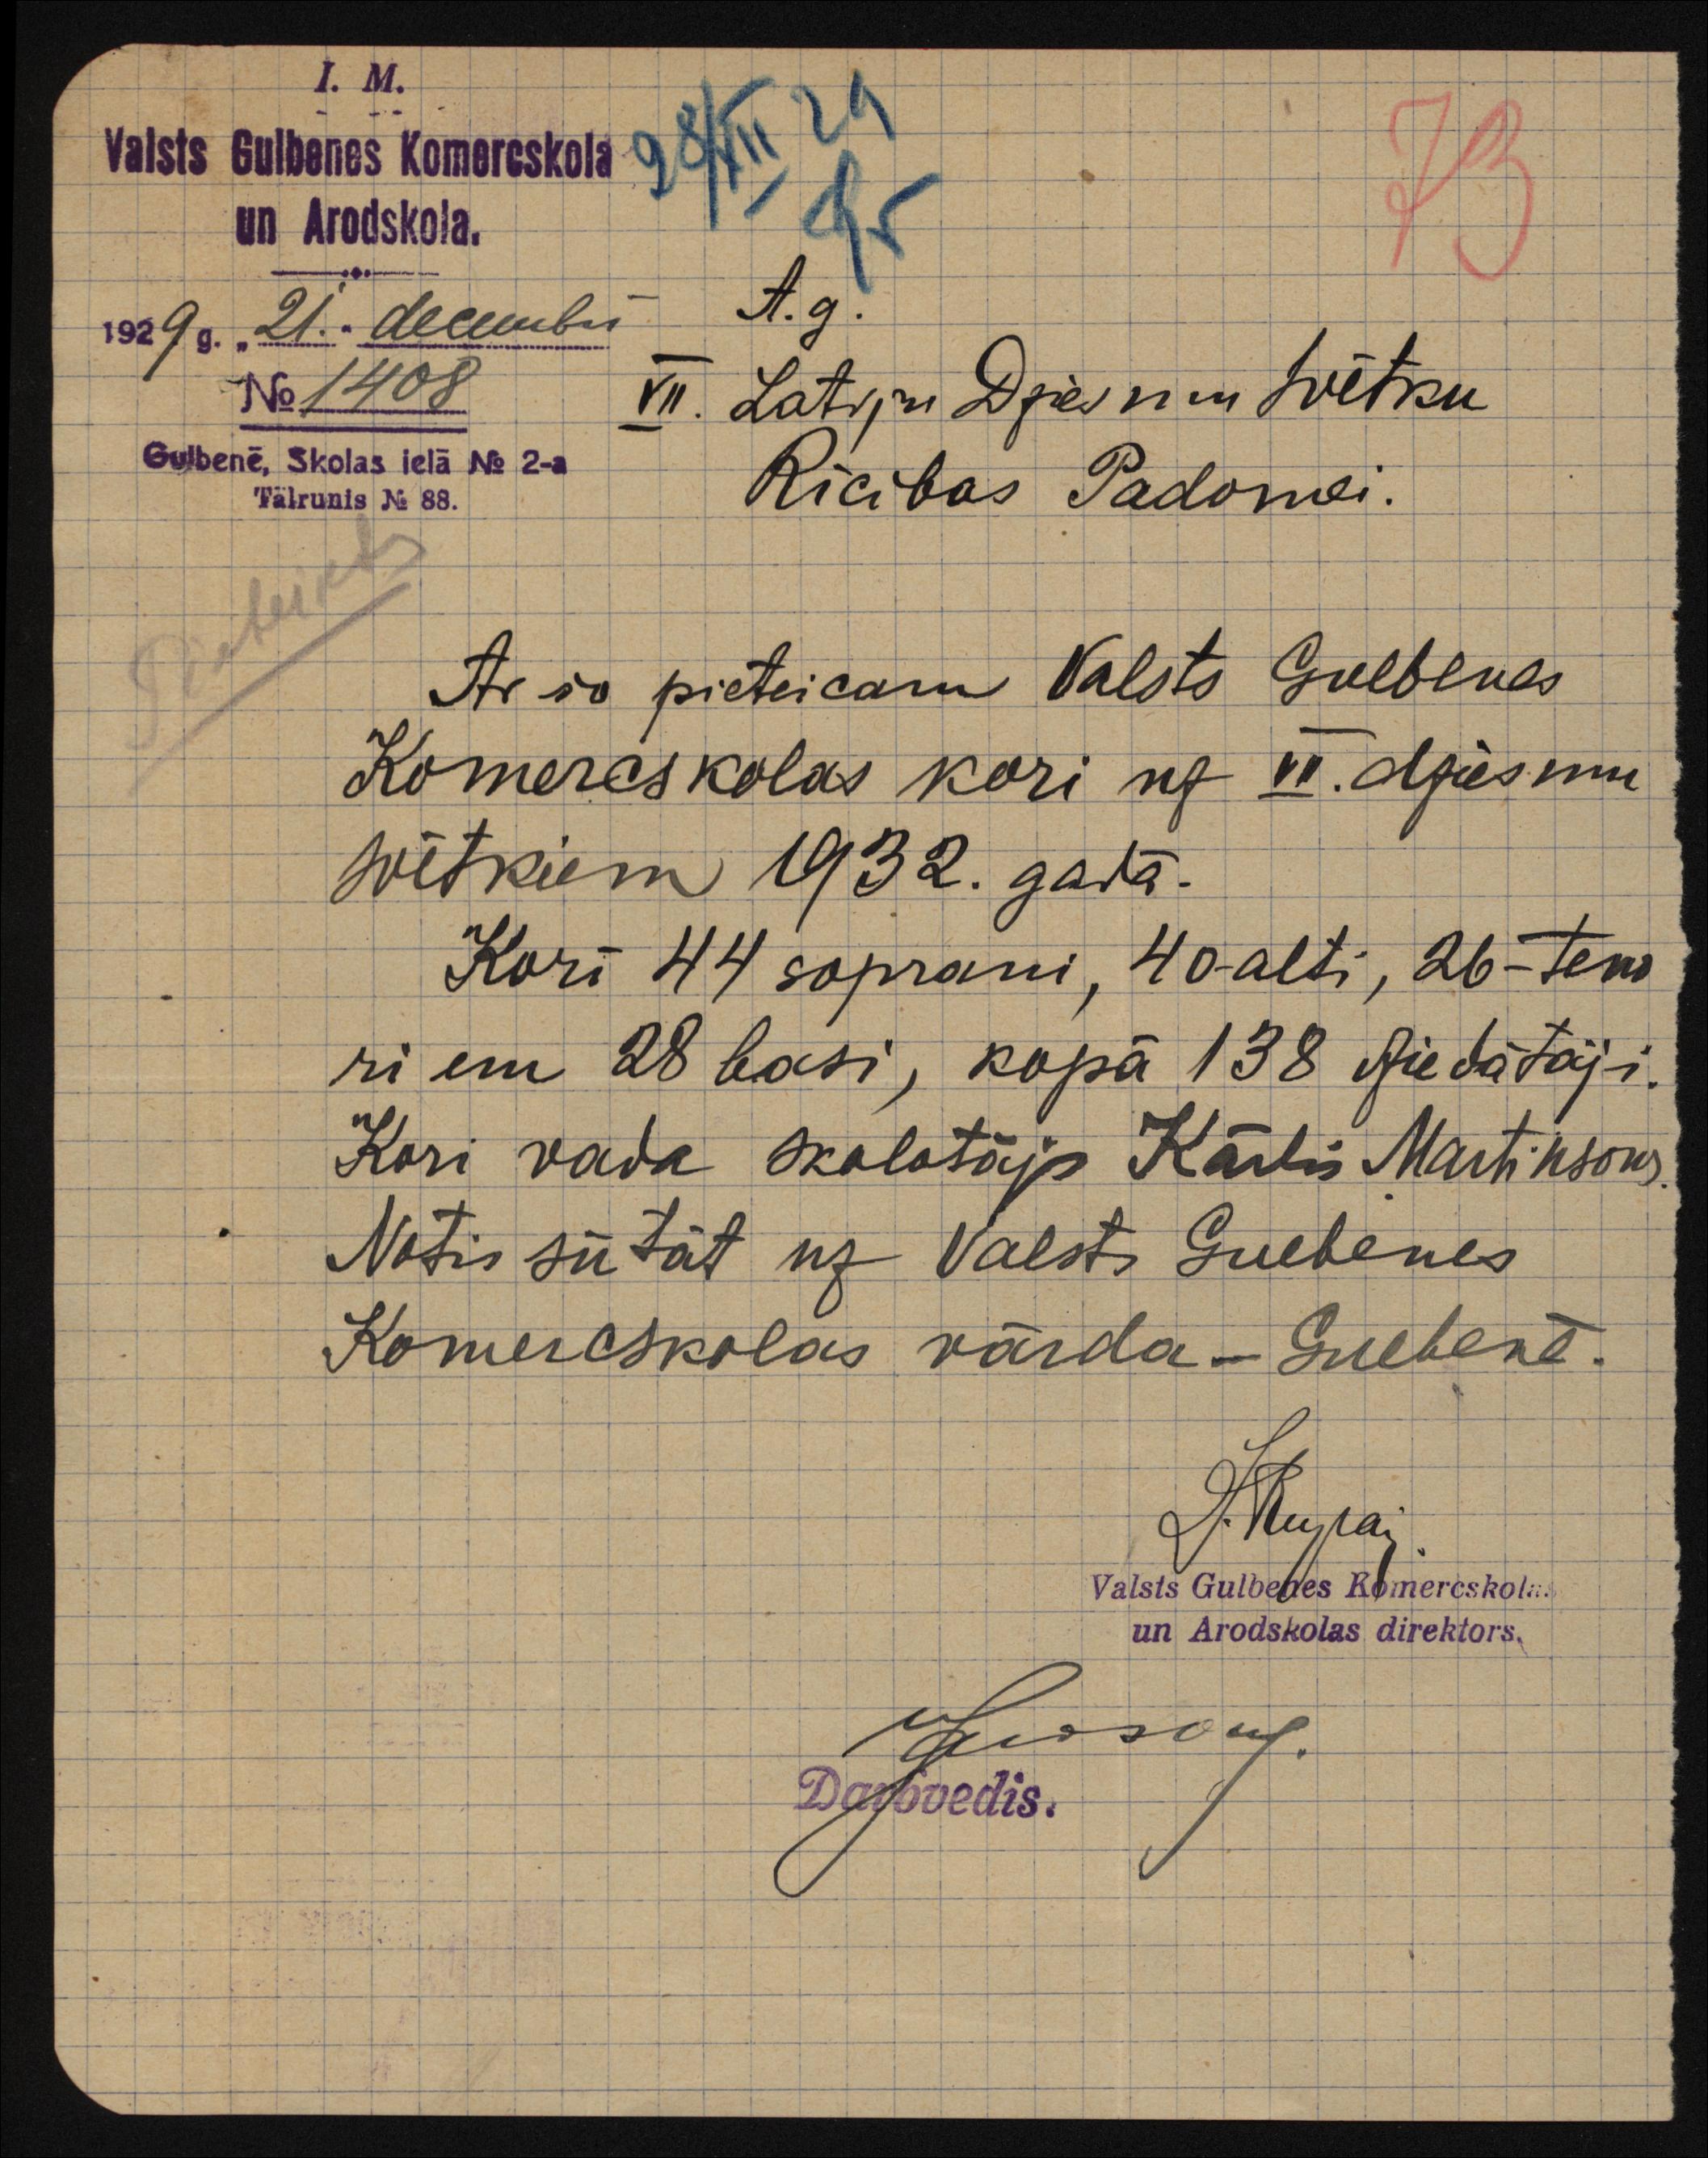 I. M.
Valsts Gulbenes Komercskola
un Arodskola.
28/XII 29
1929 g. „21." decembrī
№ 1408
Gulbenē, Skolas ielā № 2-a
Tālrunis № 88.
73
A. g.
VII. Latvju Dziesmu svētku
Rīcības Padomei.
Pieteikts
Ar šo pieteicam Valsts Gulbenes
Komercskolas kori uz VII. dziesmu
svētkiem 1932. gadā.
Korī 44 soprani, 40-alti, 26-teno
ri un 28 basi, kopā 138 dziedātāji.
Kori vada skolotājs Kārlis Martinsons.
Notis sūtāt uz Valsts Gulbenes
Komercskolas vārda - Gulbenē.
Valsts Gulbenes Komercskolas
un Arodskolas direktors.
Darbvedis.